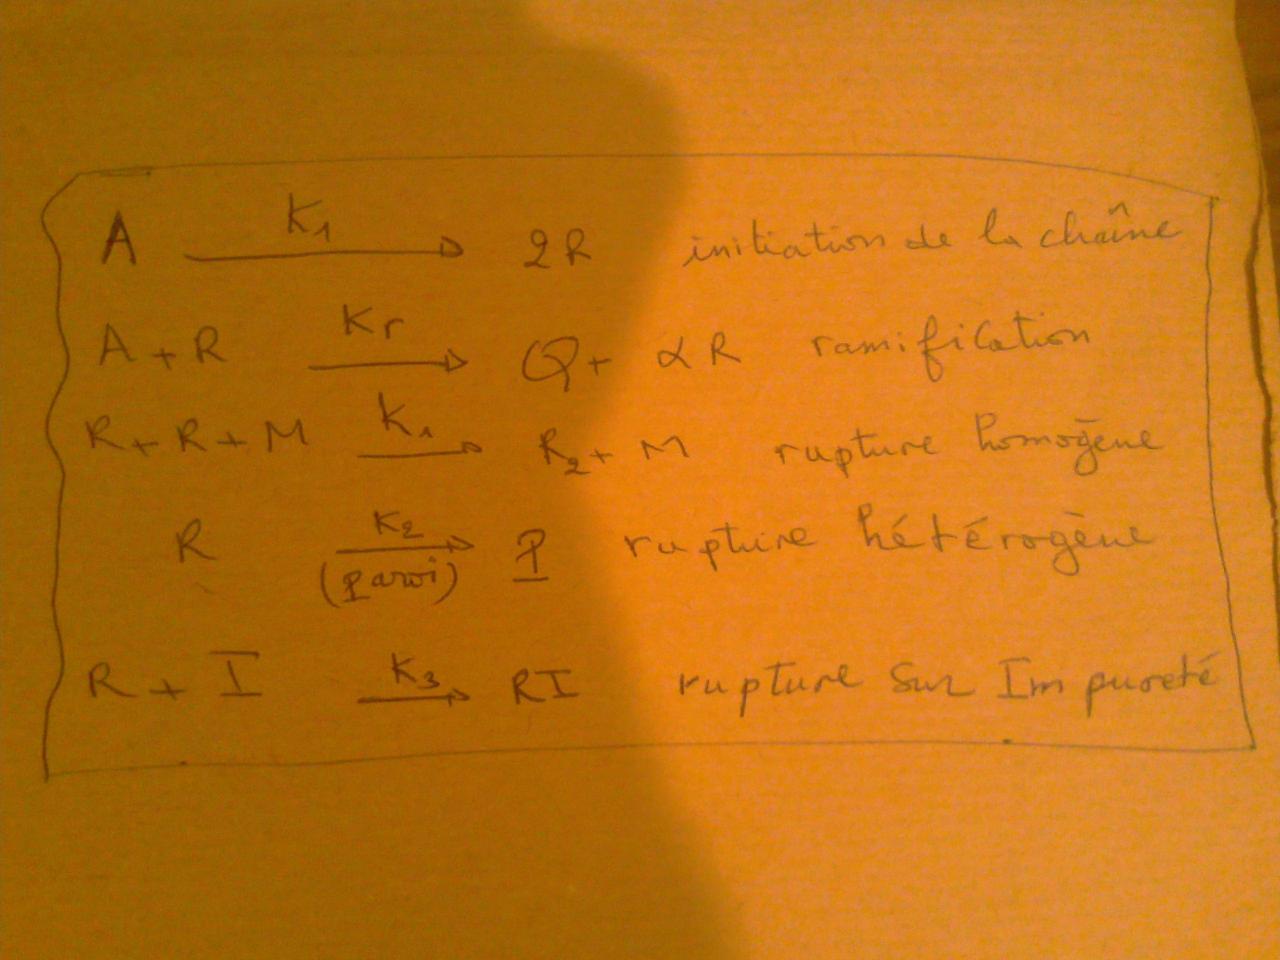 A K₁ → 2R initiation de la chaîne
A + R Kr → Q + αR ramification
R + R + M K₁ → R₂ + M rupture homogène
R K₂ → (paroi) P rupture hétérogène
R + I K₃ → RI rupture sur Impureté